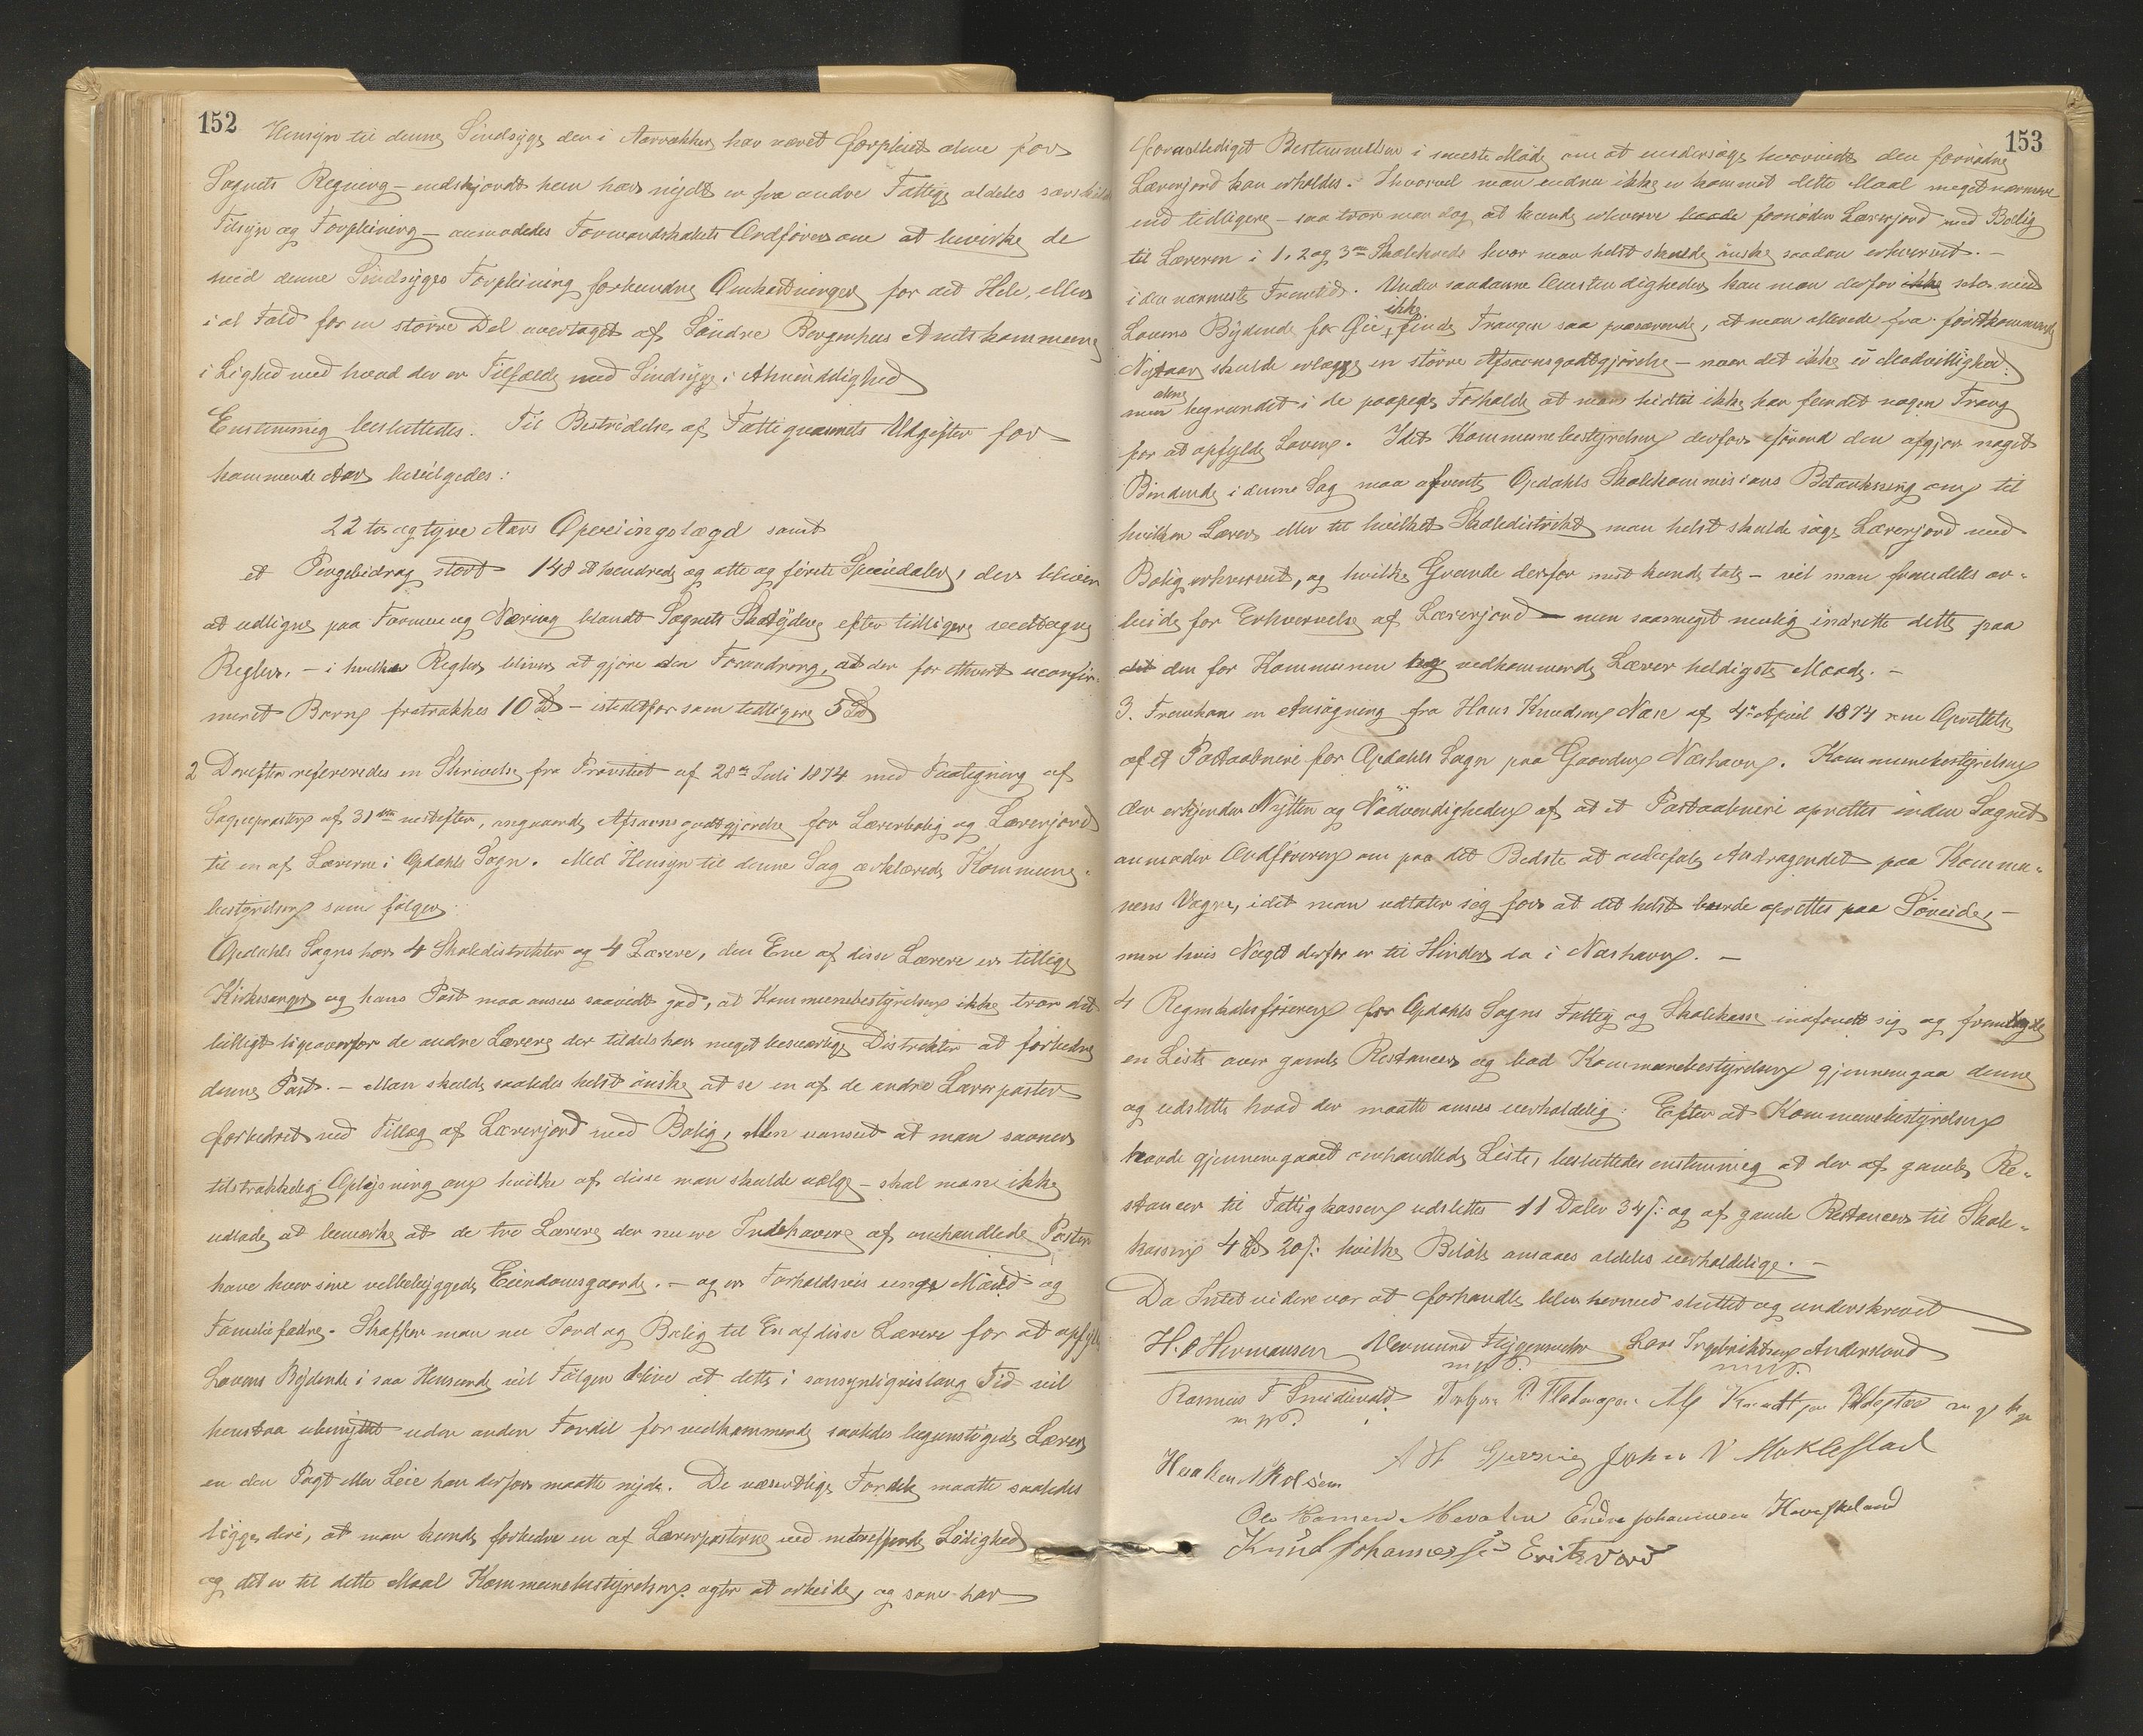 152
Hensyn til denne Sindsyge der i Aarrækker har været forpleiet alene for
Sognets Regning – endskjondt hun har nydt en fra andre Fattige aldeles særskildt
Tilsyn og Forpleining – anmodedes Formandskabets Ordfører om at bevirke de
med denne Sindsyges Forpleining forbundne Omkostninger for det Hele, eller
i al Fald for en större Del overtaget af Söndre Bergenhus Amtskommune
i Lighed med hvad der er Tilfælde med Sindsyge i Almindelighed
Enstemmig besluttedes. Til Bestridelse af Fattigvæsenets Udgifter for
kommende Aar bevilgedes:
22 to og tyve Aars Opreiingslægd samt
et Pengebidrag stort 148 et hundrede og otte og förti Speciedaler, der bliver
at udligne paa Formue og Næring blandt Sognets Skatydere efter tidligere vedtagne
Regler. – i hvilke Regler bliver at gjöre den Forandring, at der for ethvert uconfir-
meret Barn fratrækkes 10 Spd – istedetfor som tidligere 5 Spd
2 Derefter refereredes en Skrivelse fra Provstiet af 28de Juli 1874 med Paategning af
Sognepresten af 31te næstefter, angaaende Afsavnsgodtgjörelse for Lærerbolig og Lærerjord
til en af Lærerne i Opdahls Sogn. Med Hensyn til denne Sag erklærede Kommune-
bestyrelsen som fölger:
Opdahls Sogn har 4 Skoledistrikter og 4 Lærere, den Ene af disse Lærere er tillige
Kirkesanger og hans Post maa ansees saavidt god, at Kommunebestyrelsen ikke tror det
billigt ligeoverfor de andre Lærere der tildels har meget besværlige Distrikter at forbedre
denne Post. – Man skulde saaledes helst önske at se en af de andre Lærerposter
forbedret ved Tillæg af Lærerjord med Bolig, Men uanseet at man savner
tilstrækkelig Oplysning om hvilke af disse man skulde vælge – skal man ikke
udlade at bemærke at de tre Lærere der nu ere Indehavere af omhandlede Poster
have hver sine velbebyggede Eiendomsgaarde. – og er Forholdsvis unge Mænd og
Familiefædre. Skaffer man nu Jord og Bolig til En af disse Lærere for at opfylde
Lovens Bydende i saa Henseende vil Fölgen blive at dette i sansynligvis lang Tid vil
henstaa ubenyttet uden anden Fordel for vedkommende saaledes begunstigede Lærer
en den Pagt eller Leie han derfor maatte nyde. De væsentlige Fordele maatte saaledes
ligge deri, at man kunde forbedre en af Lærerposterne ved indtræffende Ledighed
og det er til dette Maal Kommunebestyrelsen agter at arbeide, og som har
153
foranlediget Bestemmelsen i sneste Möde om at undersöge hvorvidt den fornödne
Lærerjord kan erholdes. Ihvorvel man endnu ikke er kommet dette Maal meget nærmere
end tidligere – saa tror man dog at kunde erhverve fornöden Lærerjord med Bolig
til Læreren i 1. 2 og 3die Skolekreds hvor man helst skulde önske saadan erhvervet. –
i den nærmeste Fremtid. Under saadanne Omstændigheder kan man derfor selv med
Lovens Bydende for Öie, ikke finde Trangen saa presserende, at man allerede fra förstkommende
Nytaar skulde erlægge en större Afsavnsgodtgjörelse – naar det ikke er Modvillighed
men alene begrundet i de paapegte Forholde at man hidtil ikke har fundet nogen Trang
for at opfylde Loven. Idet Kommunebestyrelsen derfor förend den afgjör noget
Bindende i denne Sag maa afvente Opdahls Skolekommisions Betænkning om til
hvilken Lærer eller til hvilket Skoledistrikt man helst skulde söge Lærerjord med
Bolig erhvervet, og hvilke Grunde derfor mest kunde tale – vil man fremdeles ar-
beide for Erhvervelse af Lærerjord – men saameget mulig indrette dette paa
den for Kommunen og vedkommende Lærer heldigste Maade. –
3. Fremkom en Ansögning fra Hans Knudsen Næse af 4de April 1874 om Oprettelse
af et Postaabneri for Opdahls Sogn paa Gaarden Næshavn. Kommunebestyrelsen
der erkjender Nytten og Nödvendigheden af at et Postaabneri oprettes inden Sognet
anmoder Ordföreren om paa det Bedste at anbefale Andragendet paa Kommu-
nens Vegne, idet man udtaler sig for at det helst burde oprettes paa Söreide, –
men hvis Noget derfor er til Hinder da i Næshavn. –
4 Regnskabsföreren for Opdahls Sogns Fattig og Skolekasse indfandt sig og fremlagde
en Liste over gamle Restancer og bad Kommunebestyrelsen gjennemgaa denne
og udslette hvad der maatte ansees uerholdelig: Efter at Kommunebestyrelsen
havde gjennemgaaet omhandlede Liste, besluttedes enstemmig at der af gamle Re-
stancer til Fattigkassen udslettes 11 Daler 34 s: og af gamle Restancer til Skole-
kassen 4 Spd 20 s: hvilke Belöb ansaaes aldeles uerholdelige. –
Da Intet videre var at forhandle blev hermed sluttet og underskrevet
H. O Hermansen Lars Ingebrigtsen Anderland
m. p. P. m. p. P.
Rasmus T Smedevold
m p P.
John N Møklestad
Haaken N Rolsem
Endre Johannesen Haveskeland
Knud Johannessen Eritsvær